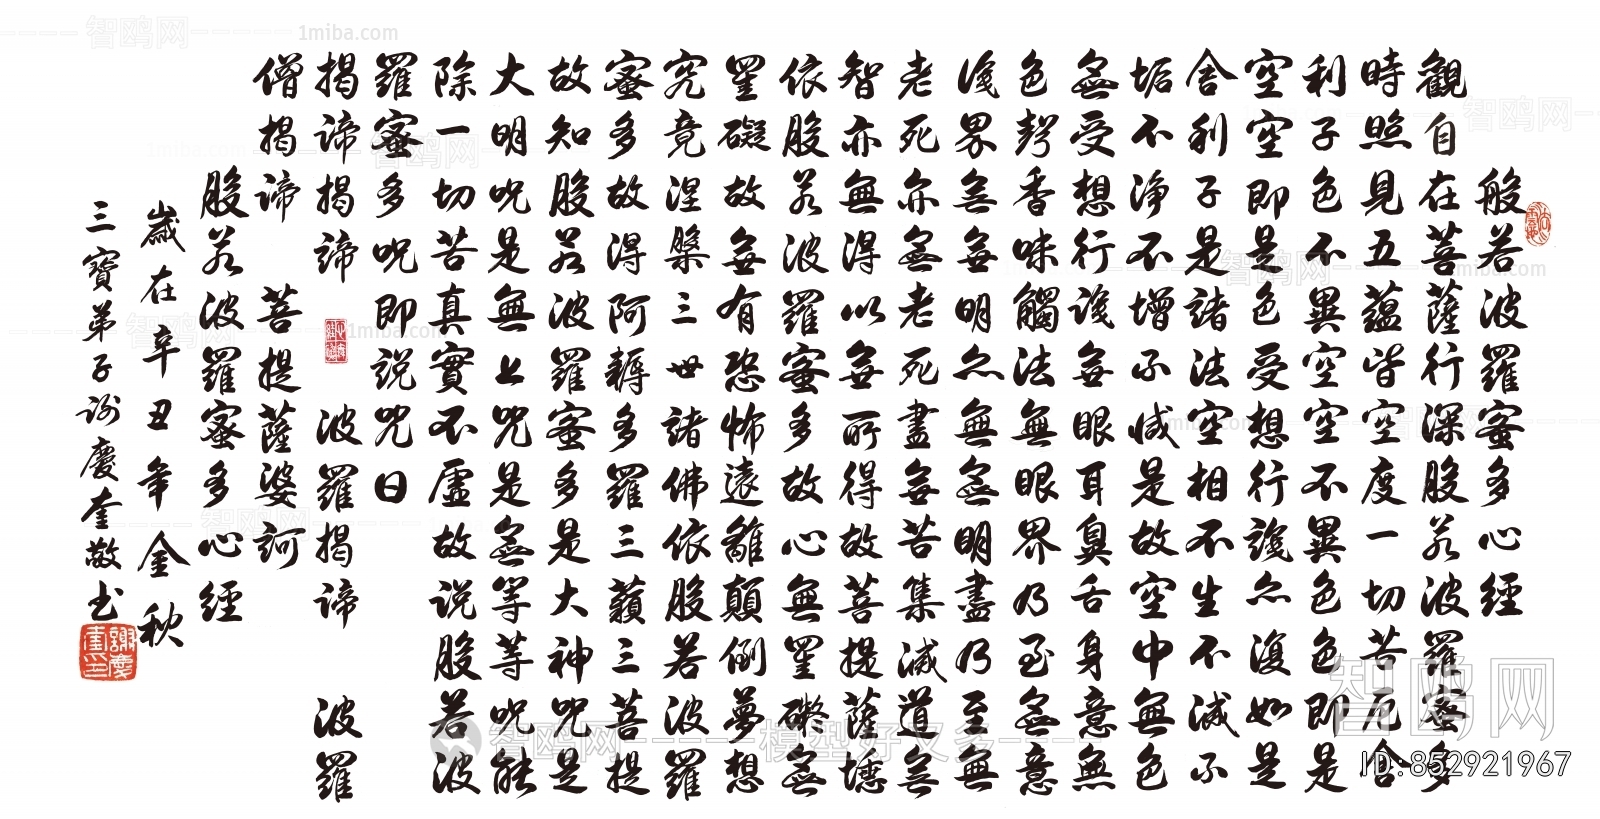 般若波羅蜜多心經
觀自在菩薩行深般若波羅蜜多
時照見五蘊皆空度一切苦厄舍
利子色不異空空不異色色即是
空空即是色受想行識亦復如是
舍利子是諸法空相不生不滅不
垢不淨不增不減是故空中無色
無受想行識無眼耳鼻舌身意無
色聲香味觸法無眼界乃至無意
識界無無明亦無無明盡乃至無
老死亦無老死盡無苦集滅道無
智亦無得以無所得故菩提薩埵
依般若波羅蜜多故心無罣礙無
罣礙故無有恐怖遠離顛倒夢想
究竟涅槃三世諸佛依般若波羅
蜜多故得阿耨多羅三藐三菩提
故知般若波羅蜜多是大神咒是
大明咒是無上咒是無等等咒能
除一切苦真實不虛故説般若波
羅蜜多咒即説咒曰
揭諦揭諦 波羅揭諦 波羅
僧揭諦 菩提薩婆訶
般若波羅蜜多心經
歲在辛丑年金秋
三寶弟子謝慶奎敬书
謝慶奎印
智鸥网
1miba.com
智鸥网 模型好又多
智鸥网
ID:852921967